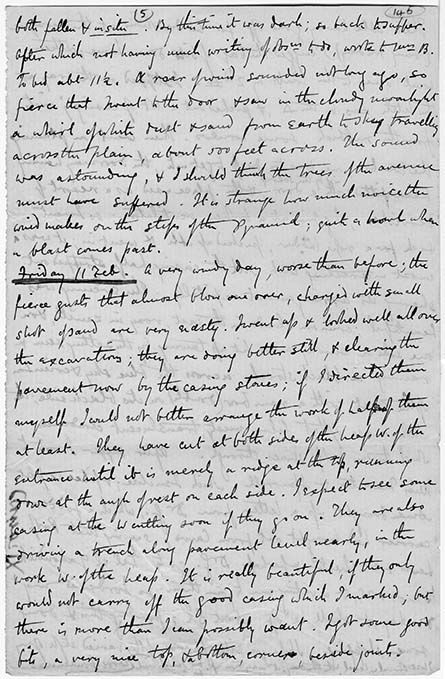 (5)
146
both fallen & in situ. By this time it was dark; so back to supper.
After which not having much writing of obsns to do, wrote to Miss B.
To bed abt 11½. A roar of wind sounded not long ago, so
fierce that I went to the door & saw in the cloudy moonlight
a whirl of white dust & sand from Earth to Sky travelling
across the plain, about 500 feet across. The sound
was astounding, & I should think the trees of the avenue
must have suffered. It is strange how much noise the
wind makes on the steps of the Pyramid; quite a howl when
a blast comes past.
Friday 11 Feb. A very windy day, worse than before; the
fierce gusts that almost blow one over, charged with small
shot of sand are very nasty. I went up & looked well all over
the excavations; they are doing better still, & clearing the
pavement now by the casing stones; if I directed them
myself I would not better arrange the work of half of them
at least. They have cut at both sides of the heap W. of the
entrance until it is merely a ridge at the top, running
down at the angle of rest on each side. I expect to see some
casing at the W cutting soon if they go on. They are also
driving a trench along pavement level nearly, in the
work W. of the heap. It is really beautiful, if they only
would not carry off the good casing which I marked; but
there is more than I can possibly want. I got some good
bits, a very nice top, & a bottom, corner beside joints.